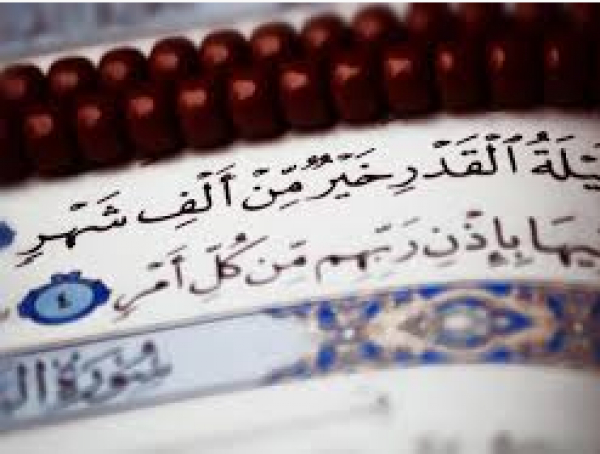 يْلَةُ ٱلْقَدْرِ خَيْرٌ مِّنْ أَلْفِ شَهْرٍ
فِيهَا بِإِذْنِ رَبِّهِم مِّن كُلِّ أَمْرٍ ٤
سُورَةُ